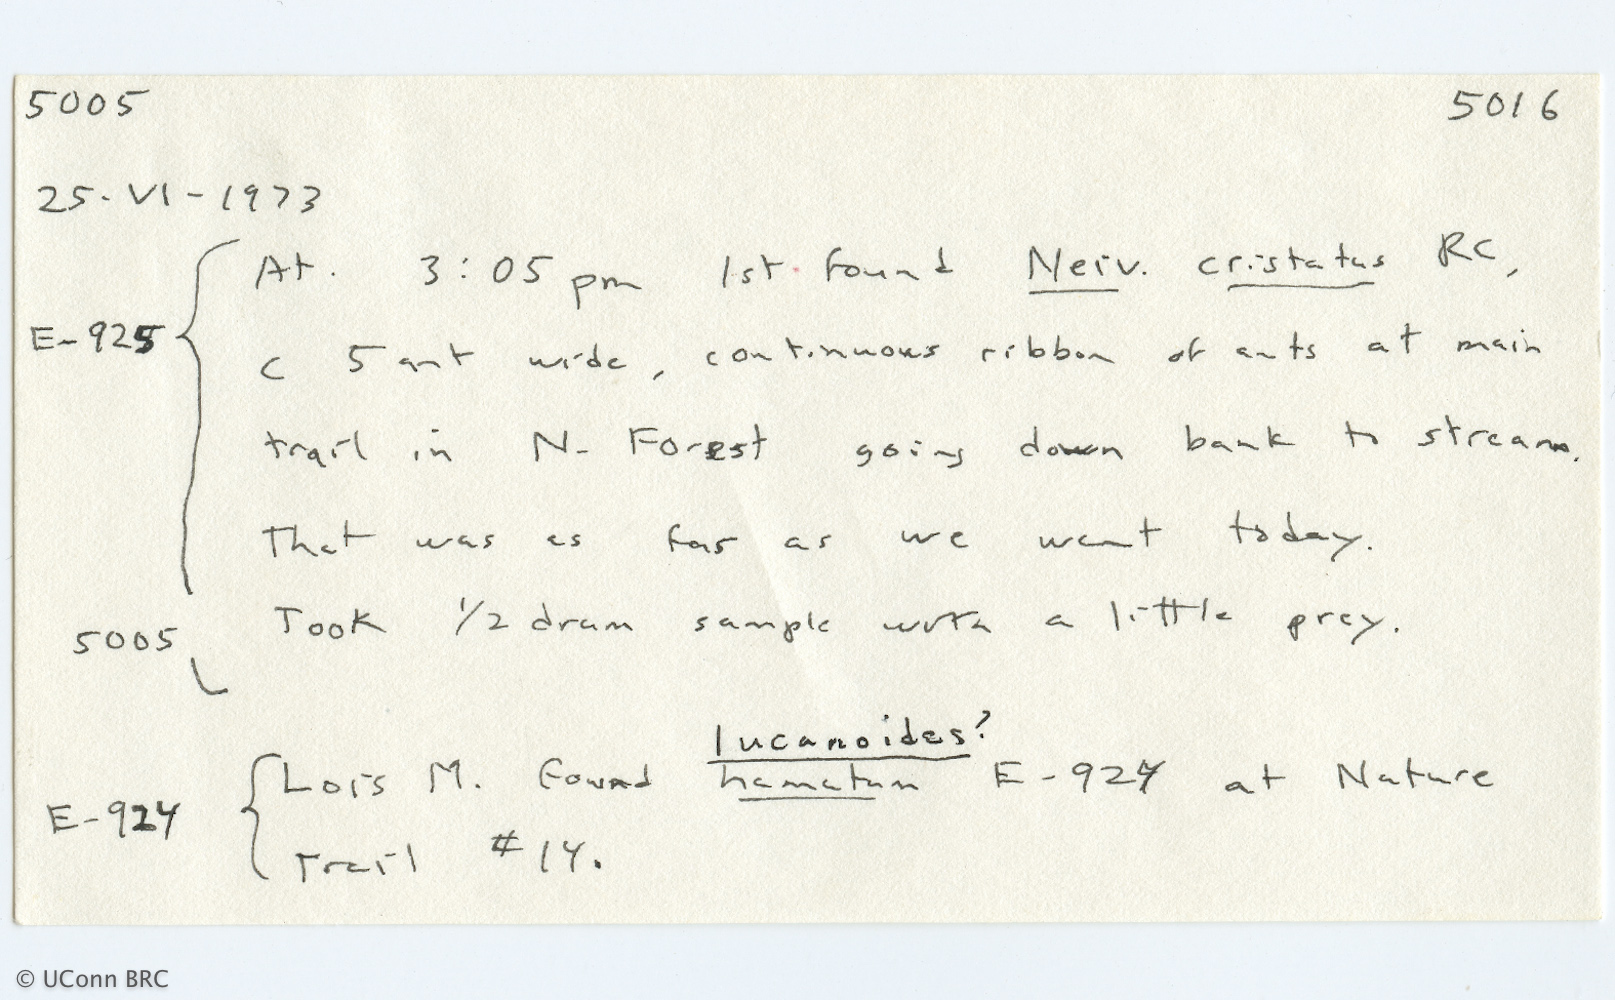 5005 5016
25-VI-1973
At. 3:05 pm 1st found Neiv. cristatus RC,
E-925 c 5 ant wide, continuous ribbon of ants at main
trail in N. Forest going down bank to stream.
That was as far as we went today.
5005 Took 1/2 dram sample with a little prey.
lucanoides?
Lois M. found hamatum E-924 at Nature
E-924 Trail #14.
© UConn BRC